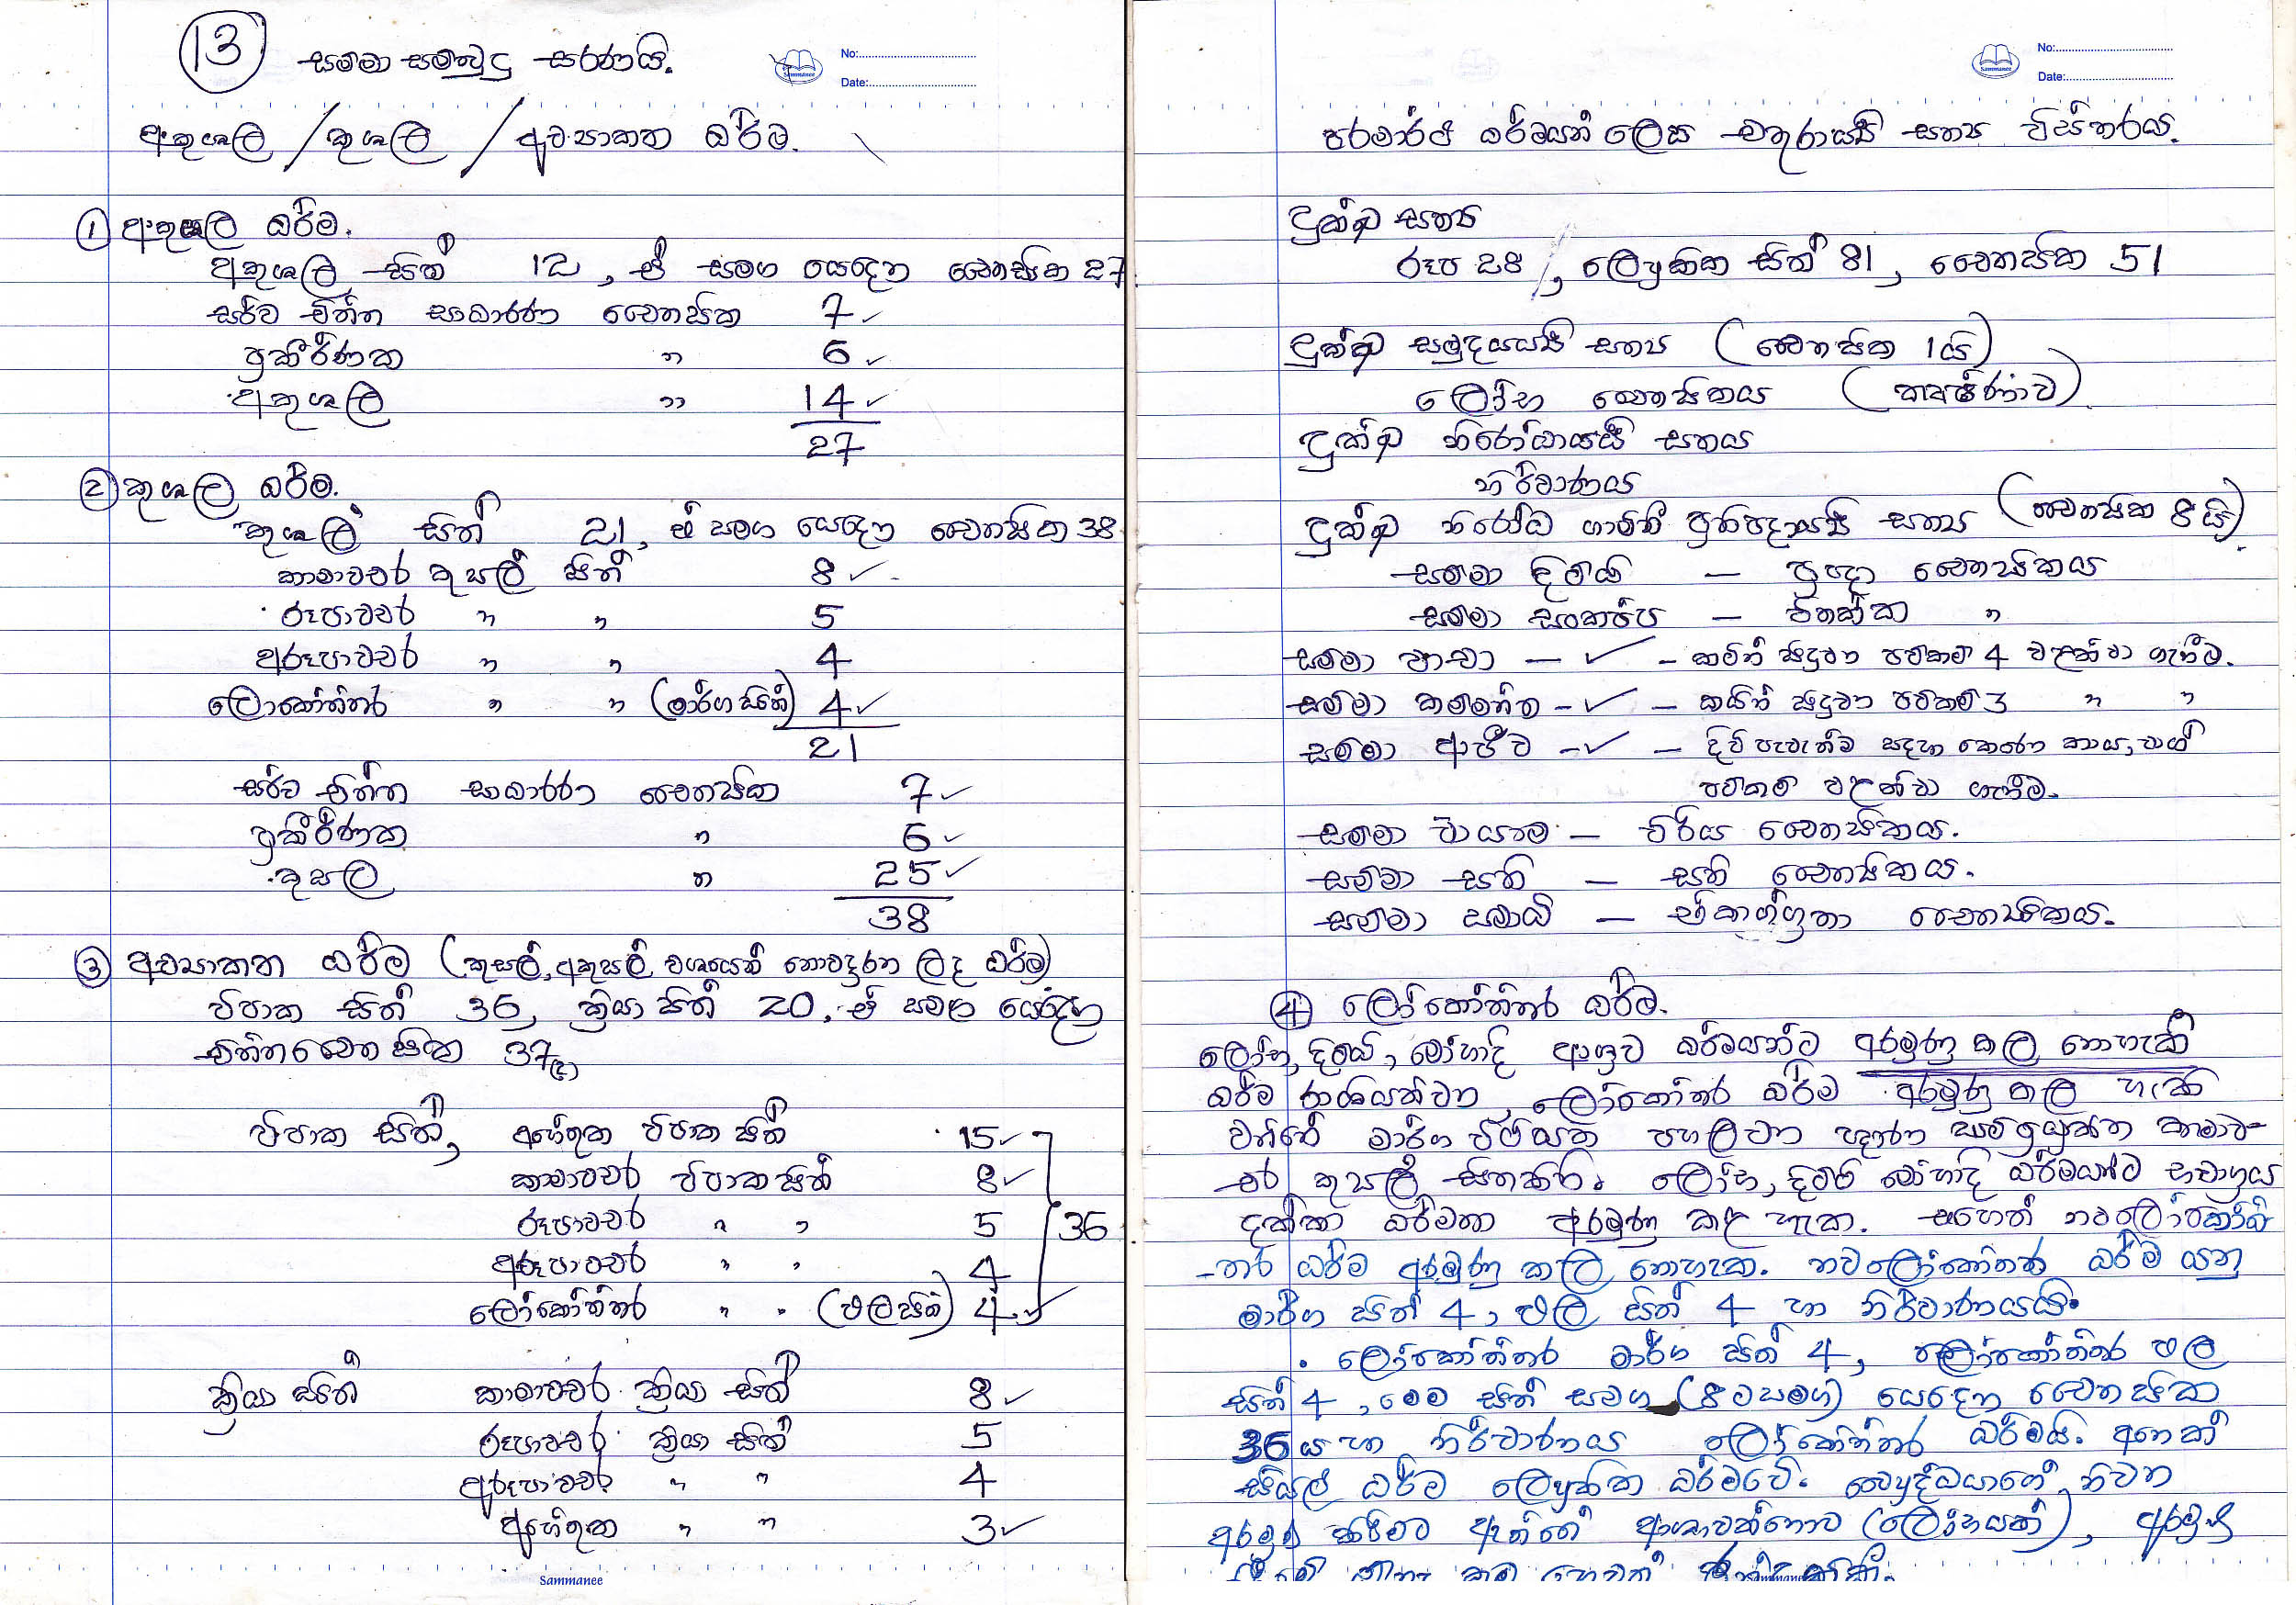 13 සම්මා සම්බුදු සරණයි.
No:
Date:
අකුශල / කුශල / අව්‍යාකත ධර්ම.
① අකුශල ධර්ම.
අකුශල සිත් 12, ඒ සමග යෙදෙන චෛතසික 27
සර්ව චිත්ත සාධාරණ චෛතසික 7 ✓
ප්‍රකීර්ණක " 6 ✓
අකුශල " 14 ✓
27
② කුශල ධර්ම.
කුශල් සිත් 21, ඒ සමග යෙදෙන චෛතසික 38
කාමාවචර කුසල් සිත් 8 ✓
රූපාවචර " " 5
අරූපාවචර " " 4
ලොකෝත්තර " " (මාර්ග සිත්) 4 ✓
21
සර්ව චිත්ත සාධාරණ චෛතසික 7 ✓
ප්‍රකීර්ණක " 6 ✓
කුසල " 25 ✓
38
③ අව්‍යාකත ධර්ම (කුසල්, අකුසල් වශයෙන් නොවදාරන ලද ධර්ම)
විපාක සිත් 36, ක්‍රියා සිත් 20, ඒ සමග යෙදෙන
චිත්ත චෛතසික 37
විපාක සිත්, අහේතුක විපාක සිත් 15 ✓
කාමාවචර විපාක සිත් 8 ✓
රූපාවචර " " 5 36
අරූපාවචර " " 4
ලෝකෝත්තර " " (ඵල සිත්) 4 ✓
ක්‍රියා සිත් කාමාවචර ක්‍රියා සිත් 8 ✓
රූපාවචර ක්‍රියා සිත් 5
අරූපාවචර " " 4
අහේතුක " " 3 ✓
Sammanee
No:
Date:
පරමාර්ථ ධර්මයන් ලෙස චතුරාර්‍ය සත්‍ය විස්තරය.
දුක්ඛ සත්‍ය
රූප 28, ලෞකික සිත් 81, චෛතසික 51
දුක්ඛ සමුදයාර්‍ය සත්‍ය (චෛතසික 1යි)
ලෝභ චෛතසිකය
දුක්ඛ නිරෝධාර්‍ය සත්‍ය
නිර්වාණය
දුක්ඛ නිරෝධ ගාමිනී ප්‍රතිපදාර්‍ය සත්‍ය (චෛතසික 8 යි)
සම්මා දිට්ඨි — ප්‍රඥා චෛතසිකය
සම්මා සංකප්ප — විතක්ක "
සම්මා වාචා — ✓ — කටින් සිදුවන පව්කම් 4 වළක්වා ගැනීම.
සම්මා කම්මන්ත — ✓ — කයින් සිදුවන පව්කම් 3 " "
සම්මා ආජීව — ✓ — දිවි පැවැත්ම සඳහා කෙරෙන කාය, වාග්
පව්කම් වළක්වා ගැනීම.
සම්මා වායාම — විරිය චෛතසිකය.
සම්මා සති — සති චෛතසිකය.
සම්මා සමාධි — ඒකාග්ග්‍රතා චෛතසිකය.
④ ලෝකෝත්තර ධර්ම.
ලෝභ, දිට්ඨි, මෝහාදි ආශ්‍රව ධර්මයන්ට අරමුණු කල නොහැකි
ධර්ම රාශියක් වන ලෝකෝත්තර ධර්ම අරමුණු කල හැකි
වන්නේ මාර්ග වීථියක පහලවන ඥාන සම්ප්‍රයුක්ත කාමාව-
චර කුසල් සිතකිනි. ලෝභ, දිට්ඨි මෝහාදි ධර්මයන්ට භවාග්‍රය
දක්වා ධර්මතා අරමුණු කළ හැක. එහෙත් නවලෝකෝත්
-තර ධර්ම අරමුණු කල නොහැක. නවලෝකෝත්තර ධර්ම යනු
මාර්ග සිත් 4, ඵල සිත් 4 හා නිර්වාණයයි.
. ලෝකෝත්තර මාර්ග සිත් 4, ලෝකෝත්තර ඵල
සිත් 4, මෙම සිත් සමග (8 ට සමග) යෙදෙන චෛතසික
36 ය හා නිර්වාණය ලෝකෝත්තර ධර්මයි. අනෙක්
සියල් ධර්ම ලෞකික ධර්මවේ. බෞද්ධයාගේ නිවන
අරමුණු කිරීමට ඇත්තේ ආශාවක් නොව (ලෝභයක්), අරමුණු